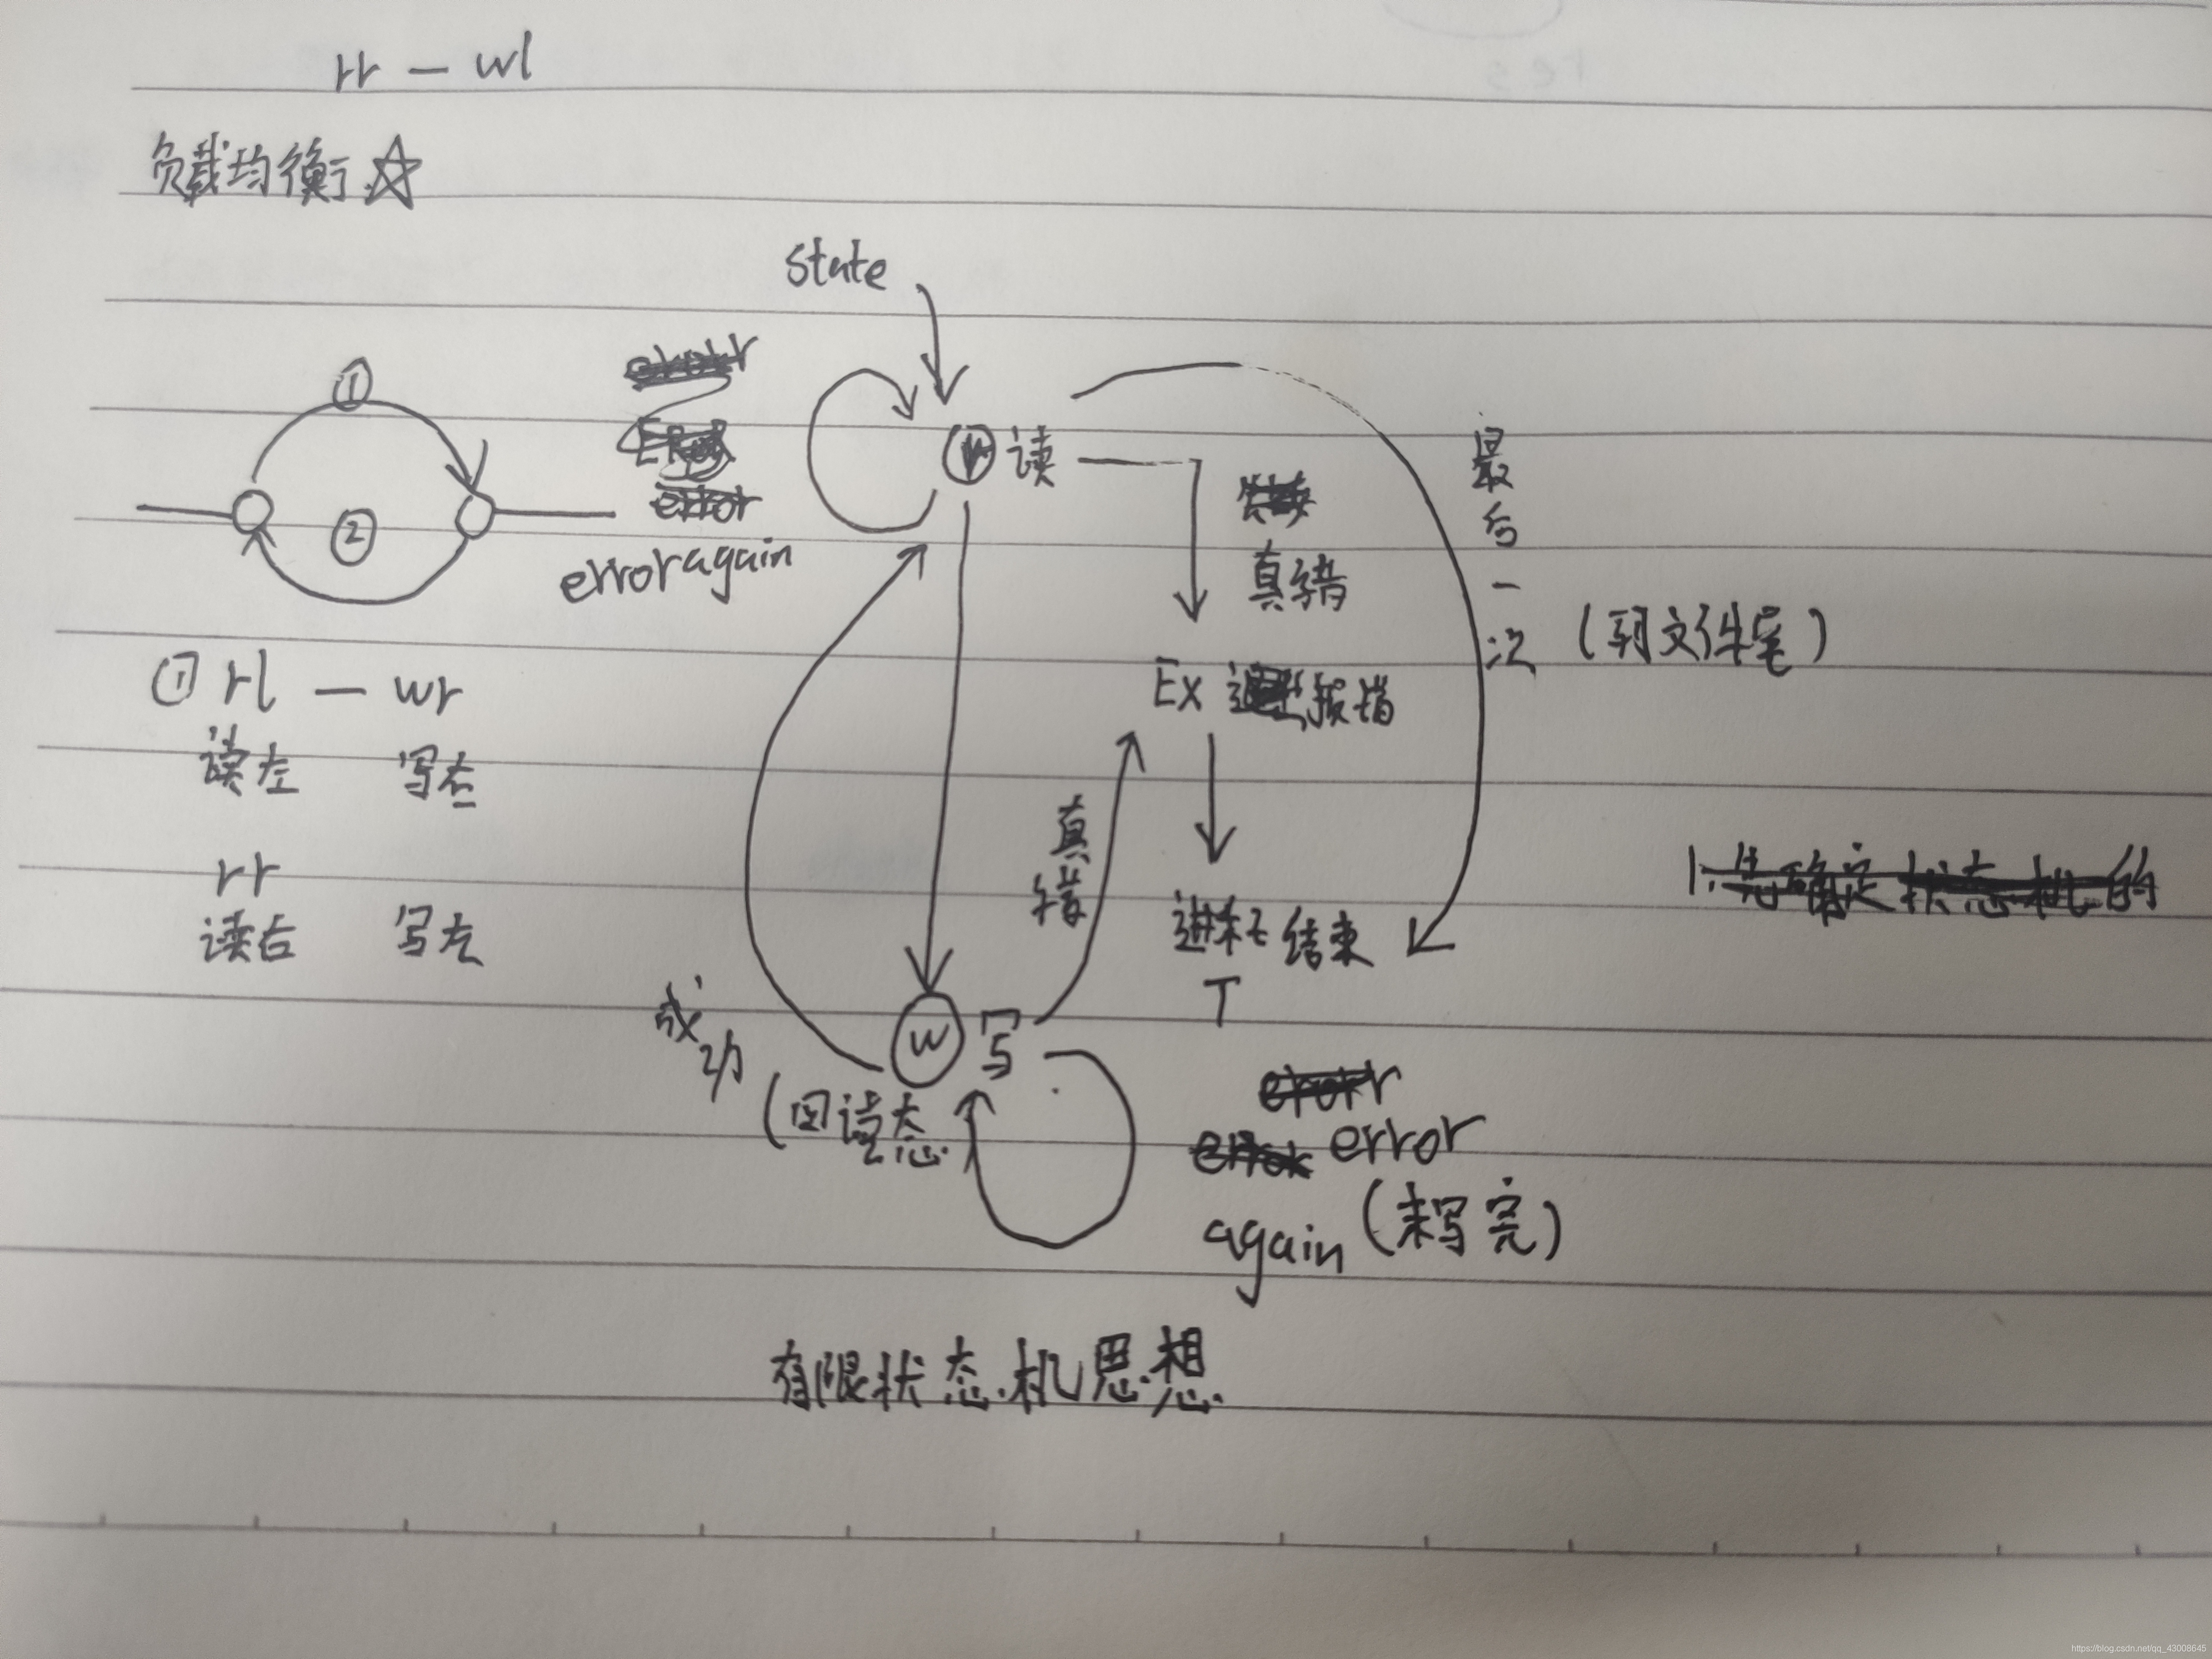 rr — wl
负载均衡 ☆
state
①
②
error again
r 读
真错
最后一次
(到文件尾)
① rl — wr
读左 写右
rr
读右 写左
Ex 报错
真错
进程结束
T
成功
(回读态)
W 写
error
again (未写完)
1.先确定状态机的
有限状态机思想
https://blog.csdn.net/qq_43008645